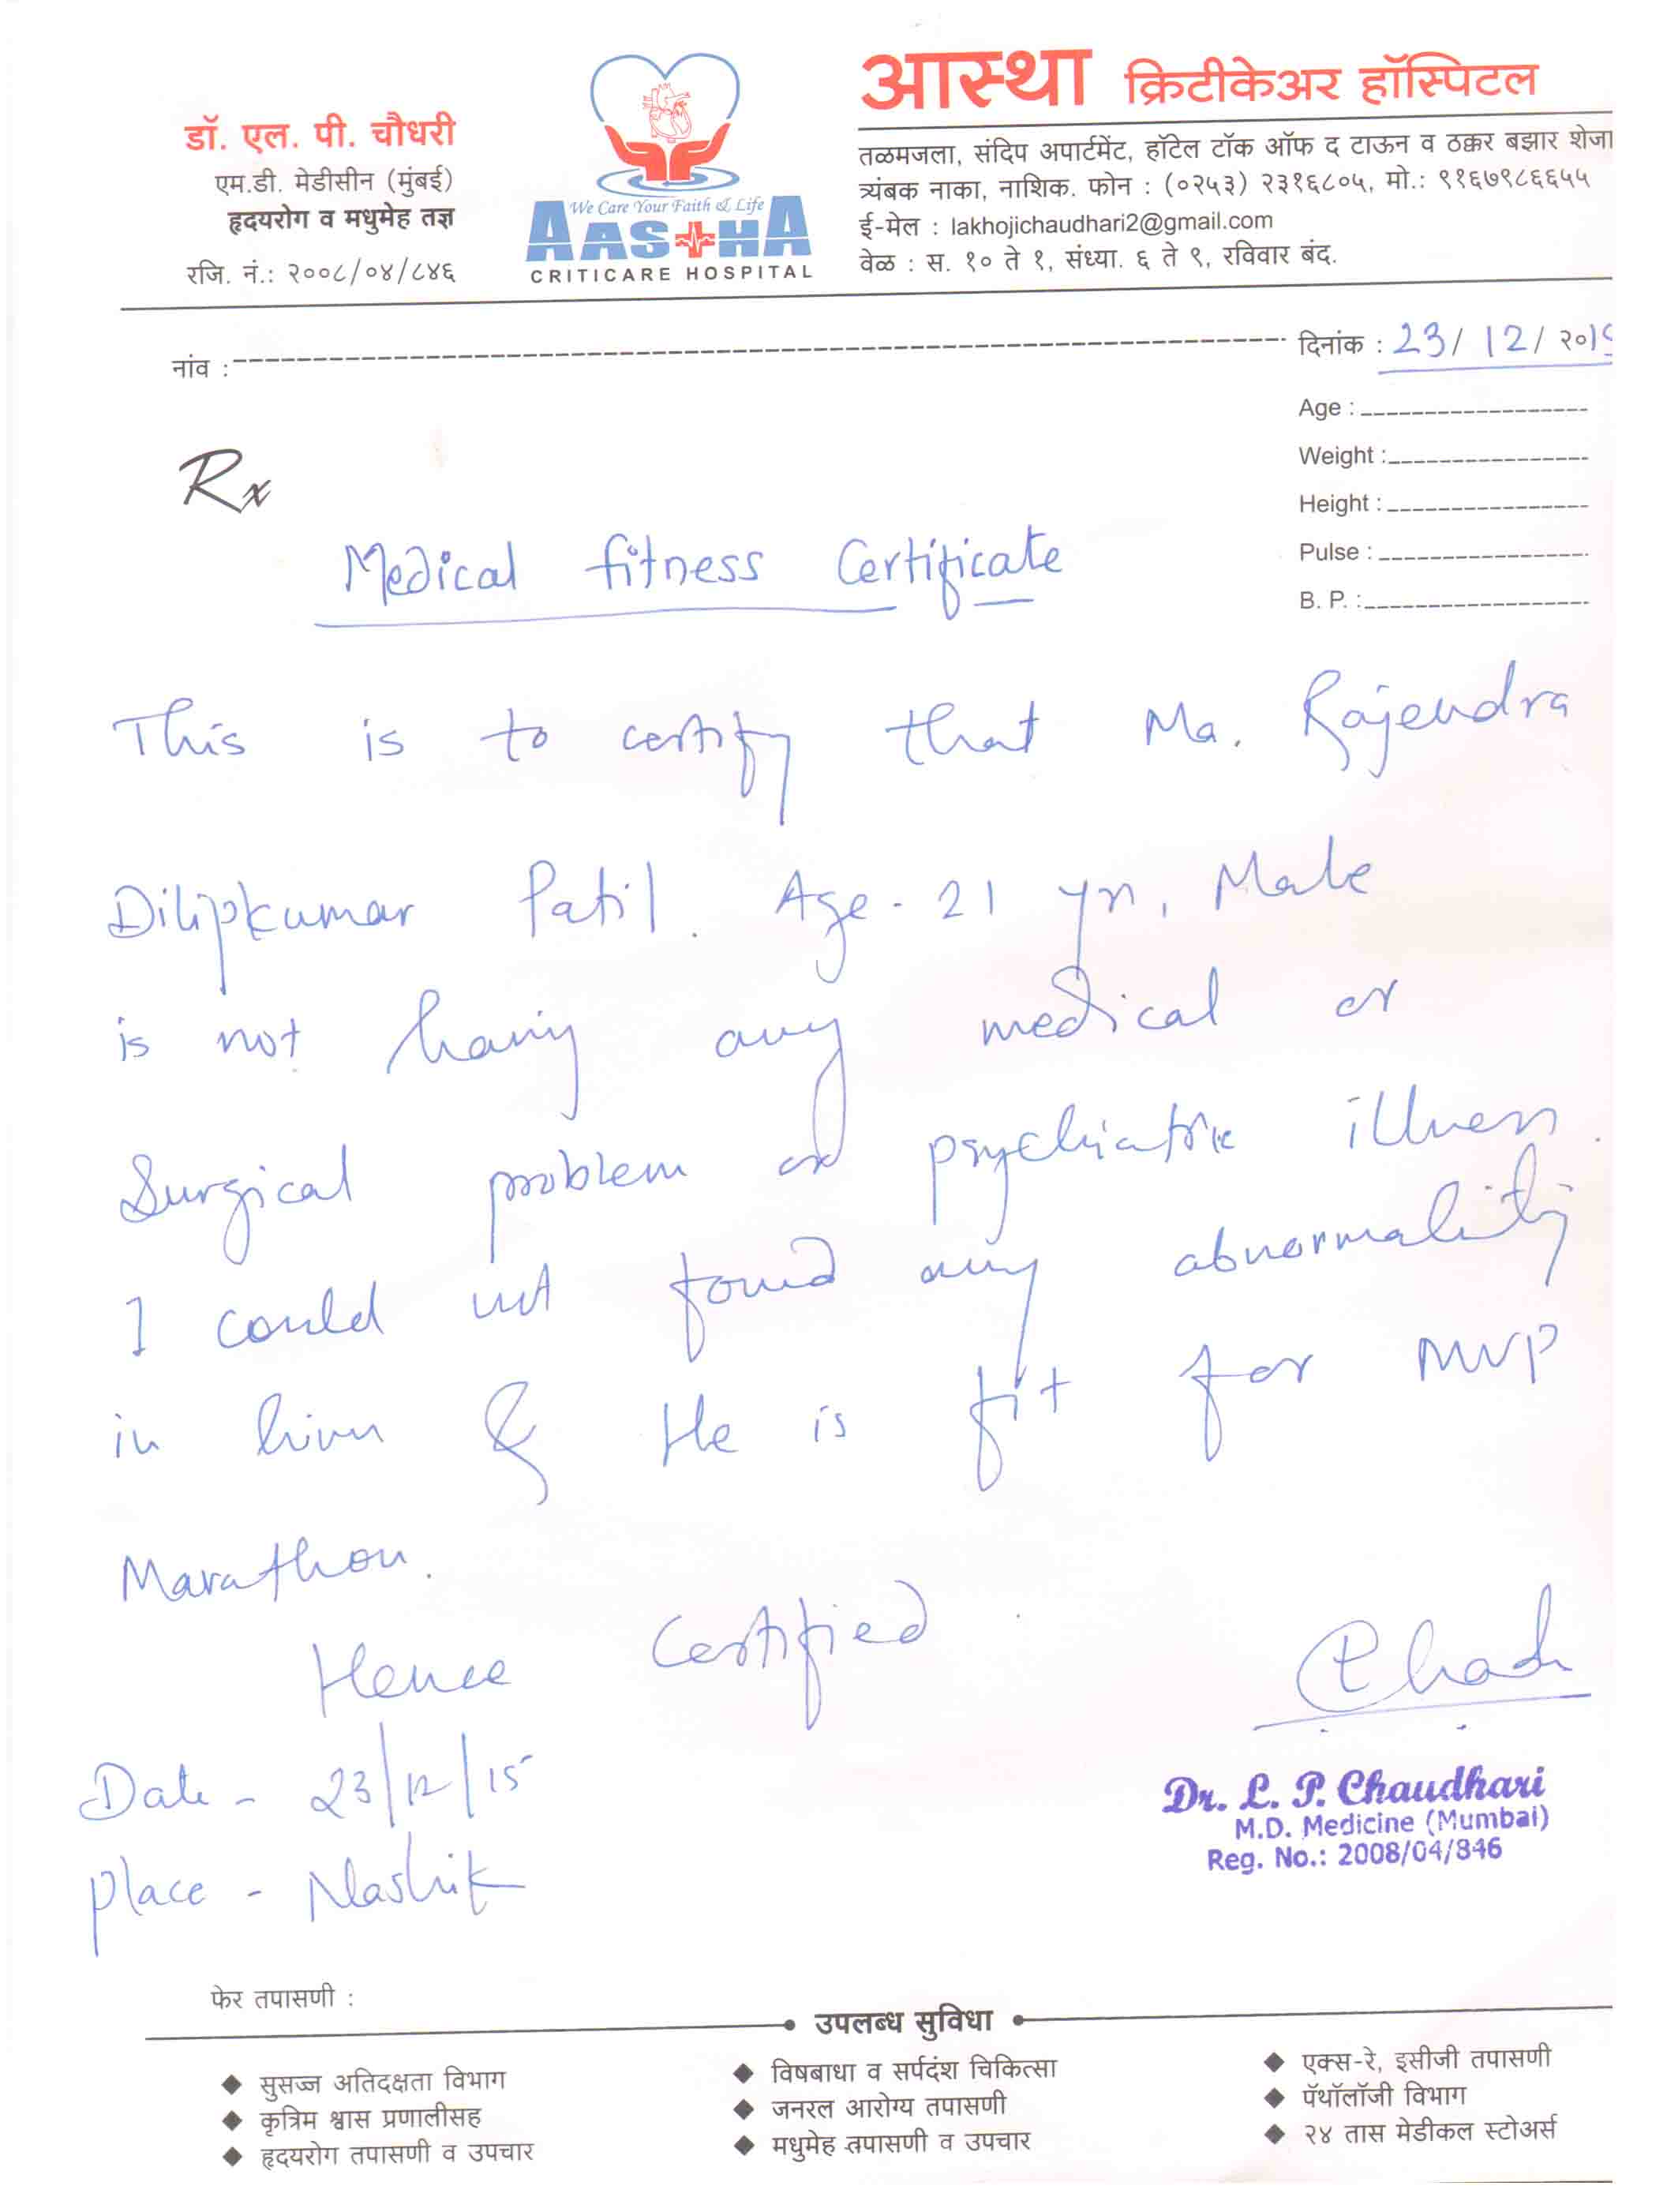 डॉ. एल. पी. चौधरी
एम.डी. मेडीसीन (मुंबई)
हृदयरोग व मधुमेह तज्ञ
रजि. नं.: २००८/०४/८४६
We Care Your Faith & Life
AASTHA
CRITICARE HOSPITAL
आस्था क्रिटीकेअर हॉस्पिटल
तळमजला, संदिप अपार्टमेंट, हॉटेल टॉक ऑफ द टाऊन व ठक्कर बझार शेजा
त्र्यंबक नाका, नाशिक. फोन : (०२५३) २३१६८०५, मो.: ९१६७९८६६५५
ई-मेल : lakhojichaudhari2@gmail.com
वेळ : स. १० ते १, संध्या. ६ ते ९, रविवार बंद.
नांव :
दिनांक : 23/ 12/ २०15
Age :
Weight :
Height :
Pulse :
B. P. :
Rx
Medical fitness Certificate
This is to certify that Mr. Rajendra
Dilipkumar Patil. Age - 21 yr, Male
is not having any medical or
Surgical problem or psychiatric illness.
I could not found any abnormality
in him & He is fit for MVP
Marathon.
Hence Certified.
Date - 23/12/15
Place - Nashik
Dr. L. P. Chaudhari
M.D. Medicine (Mumbai)
Reg. No.: 2008/04/846
फेर तपासणी :
उपलब्ध सुविधा
सुसज्ज अतिदक्षता विभाग
कृत्रिम श्वास प्रणालीसह
हृदयरोग तपासणी व उपचार
विषबाधा व सर्पदंश चिकित्सा
जनरल आरोग्य तपासणी
मधुमेह तपासणी व उपचार
एक्स-रे, इसीजी तपासणी
पॅथॉलॉजी विभाग
२४ तास मेडीकल स्टोअर्स